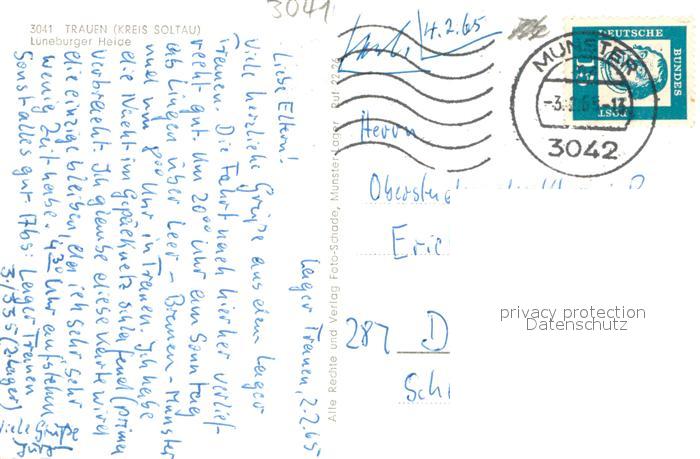 3041 TRAUEN (KREIS SOLTAU)
Lüneburger Heide
3041
Lager Trauen, 2.2.65
Liebe Eltern!
Viele herzliche Grüße aus dem Lager
Trauen. Die Fahrt nach hierher verlief
recht gut. Um 20⁰⁰ Uhr am Sonntag
ab Lingen über Leer – Bremen – Munster
und um 8⁰⁰ Uhr in Trauen. Ich habe
die Nacht im Gepäcknetz schlafend (prima)
verbracht. Ich glaube diese Karte wird
die einzige bleiben, da ich sehr sehr
wenig Zeit habe. 4³⁰ Uhr aufstehen
Sonst alles gut. Abs: Lager Trauen
3./335 (2. Lager)
Viele Grüße
Alte Rechte und Verlag Foto-Schade, Munster-Lager Ruf 22 26
4.2.65
DEUTSCHE
BUNDES
POST
15
MUNSTER
-3.2.65-13
3042
Herrn
Eric
287 D
Schl
privacy protection
Datenschutz